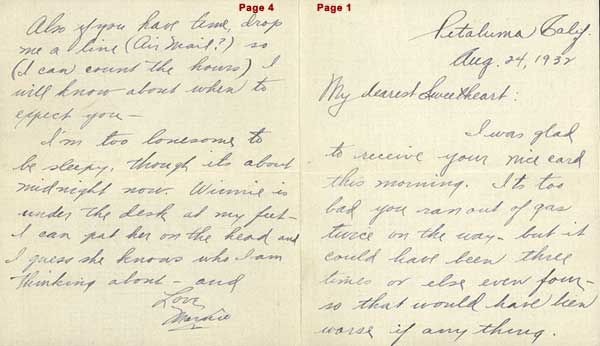 Page 4
Also if you have time, drop
me a line (Air Mail?) so
(I can count the hours) I
will know about when to
expect you –
I'm too lonesome to
be sleepy, though its about
midnight now. Winnie is
under the desk at my feet –
I can pat her on the head and
I guess she knows who I am
thinking about – and
Love
Page 1
Petaluma Calif.
Aug. 24, 1932
My dearest Sweetheart:
I was glad
to receive your nice card
this morning. Its too
bad you ran out of gas
twice on the way – but it
could have been three
times or else even four –
so that would have been
worse if any thing.